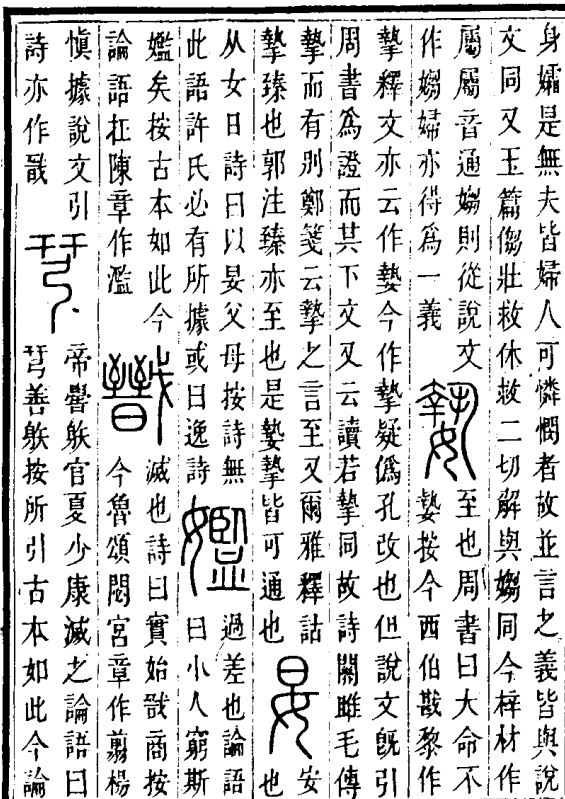 身孀是無夫皆婦人可憐憫者故並言之義皆與說
文同又玉篇㑳壯救休救二切解與媰同今梓材作
屬屬音通媰則從說文
作媰婦亦得爲一義
𡠗
至也周書曰大命不
𡠗按今西伯戡黎作
摯釋文亦云作𡠗今作摯疑僞孔改也但說文旣引
周書爲證而其下文又云讀若摯同故詩關雎毛傳
摯而有別鄭箋云摯之言至又爾雅釋詁
摯臻也郭注臻亦至也是𡠗摯皆可通也
晏
安
也
从女日詩曰以晏父母按詩無
此語許氏必有所據或曰逸詩
㜮
過差也論語
曰小人窮斯
㜮矣按古本如此今
論語在陳章作濫
戩
滅也詩曰實始戩商按
今魯頌閟宮章作翦楊
慎據說文引
詩亦作戩
𢏗
帝嚳䠶官夏少康滅之論語曰
𢏗善䠶按所引古本如此今論